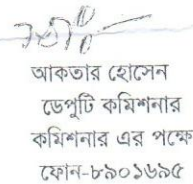 আকতার হোসেন
ডেপুটি কমিশনার
কমিশনার এর পক্ষে
ফোন-৮৯০১৬৯৫